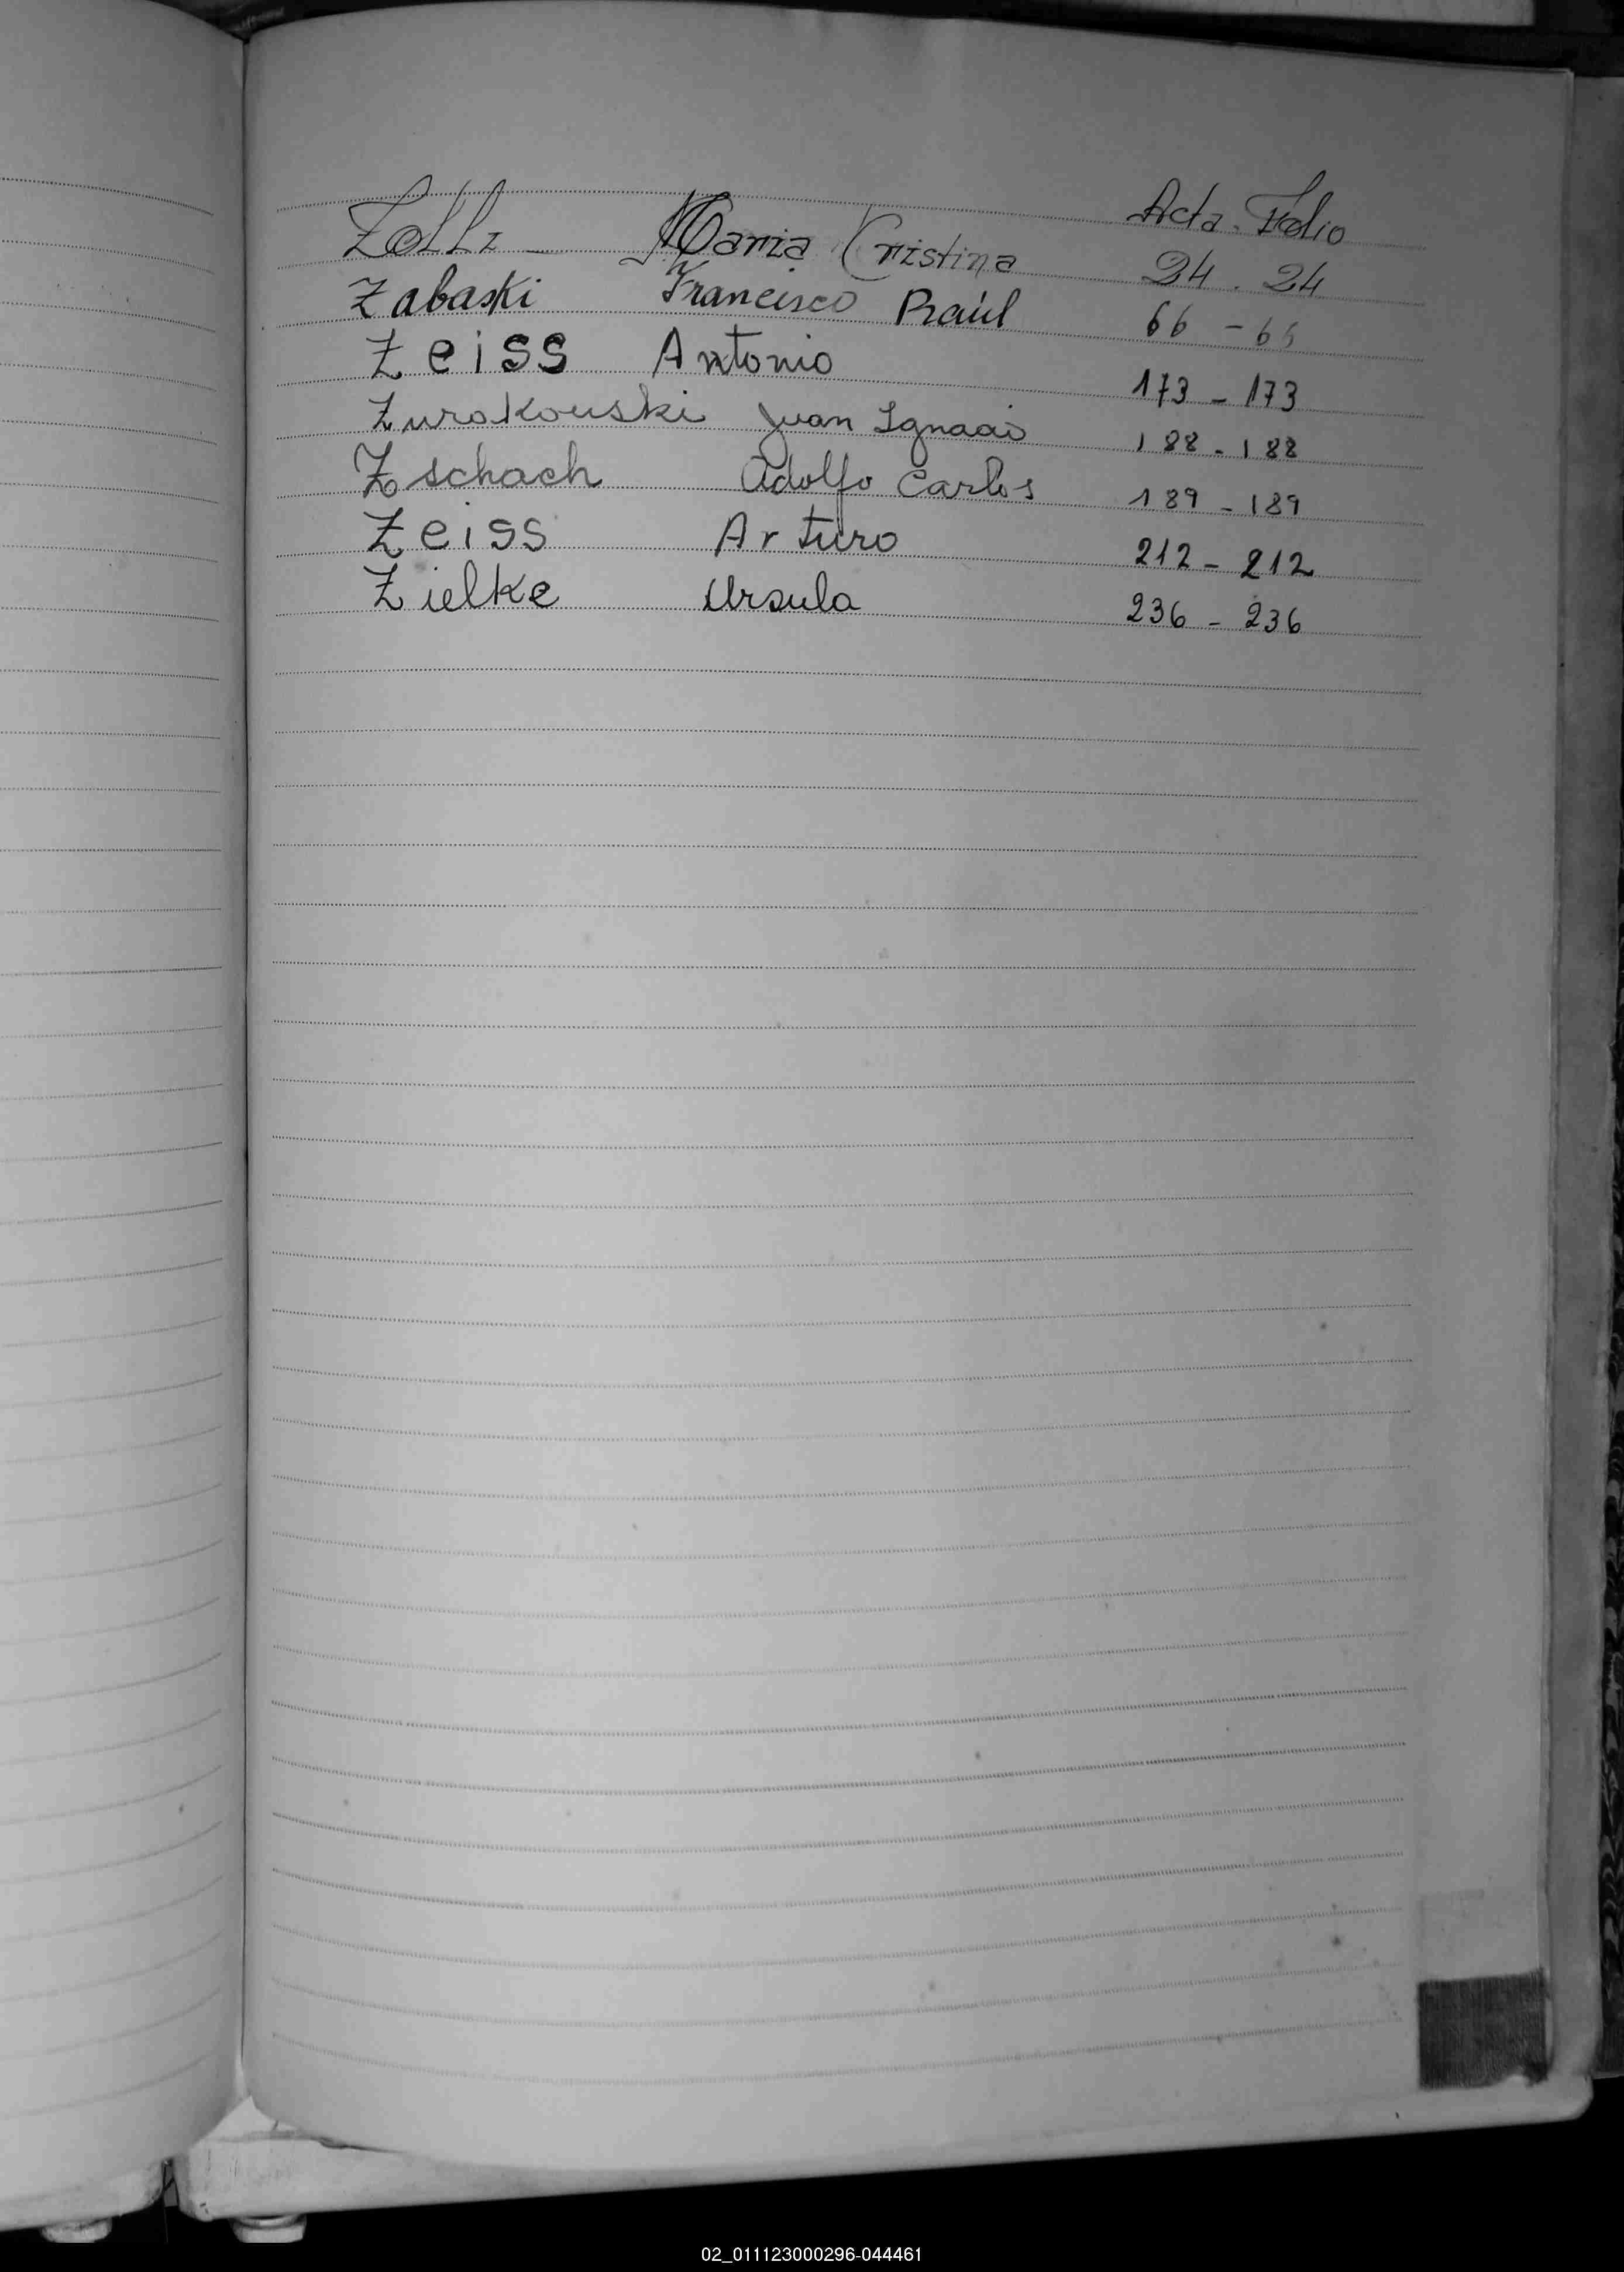 Acta. Folio
Zolli - Maria Cristina 24. 24
Zabaski Francisco Raúl 66 - 66
Zeiss Antonio 173 - 173
Zurakouski Juan Ignacio 188 - 188
Zschach Adolfo Carlos 189 - 189
Zeiss Arturo 212 - 212
Zielke Ursula 236 - 236
02_011123000296-044461